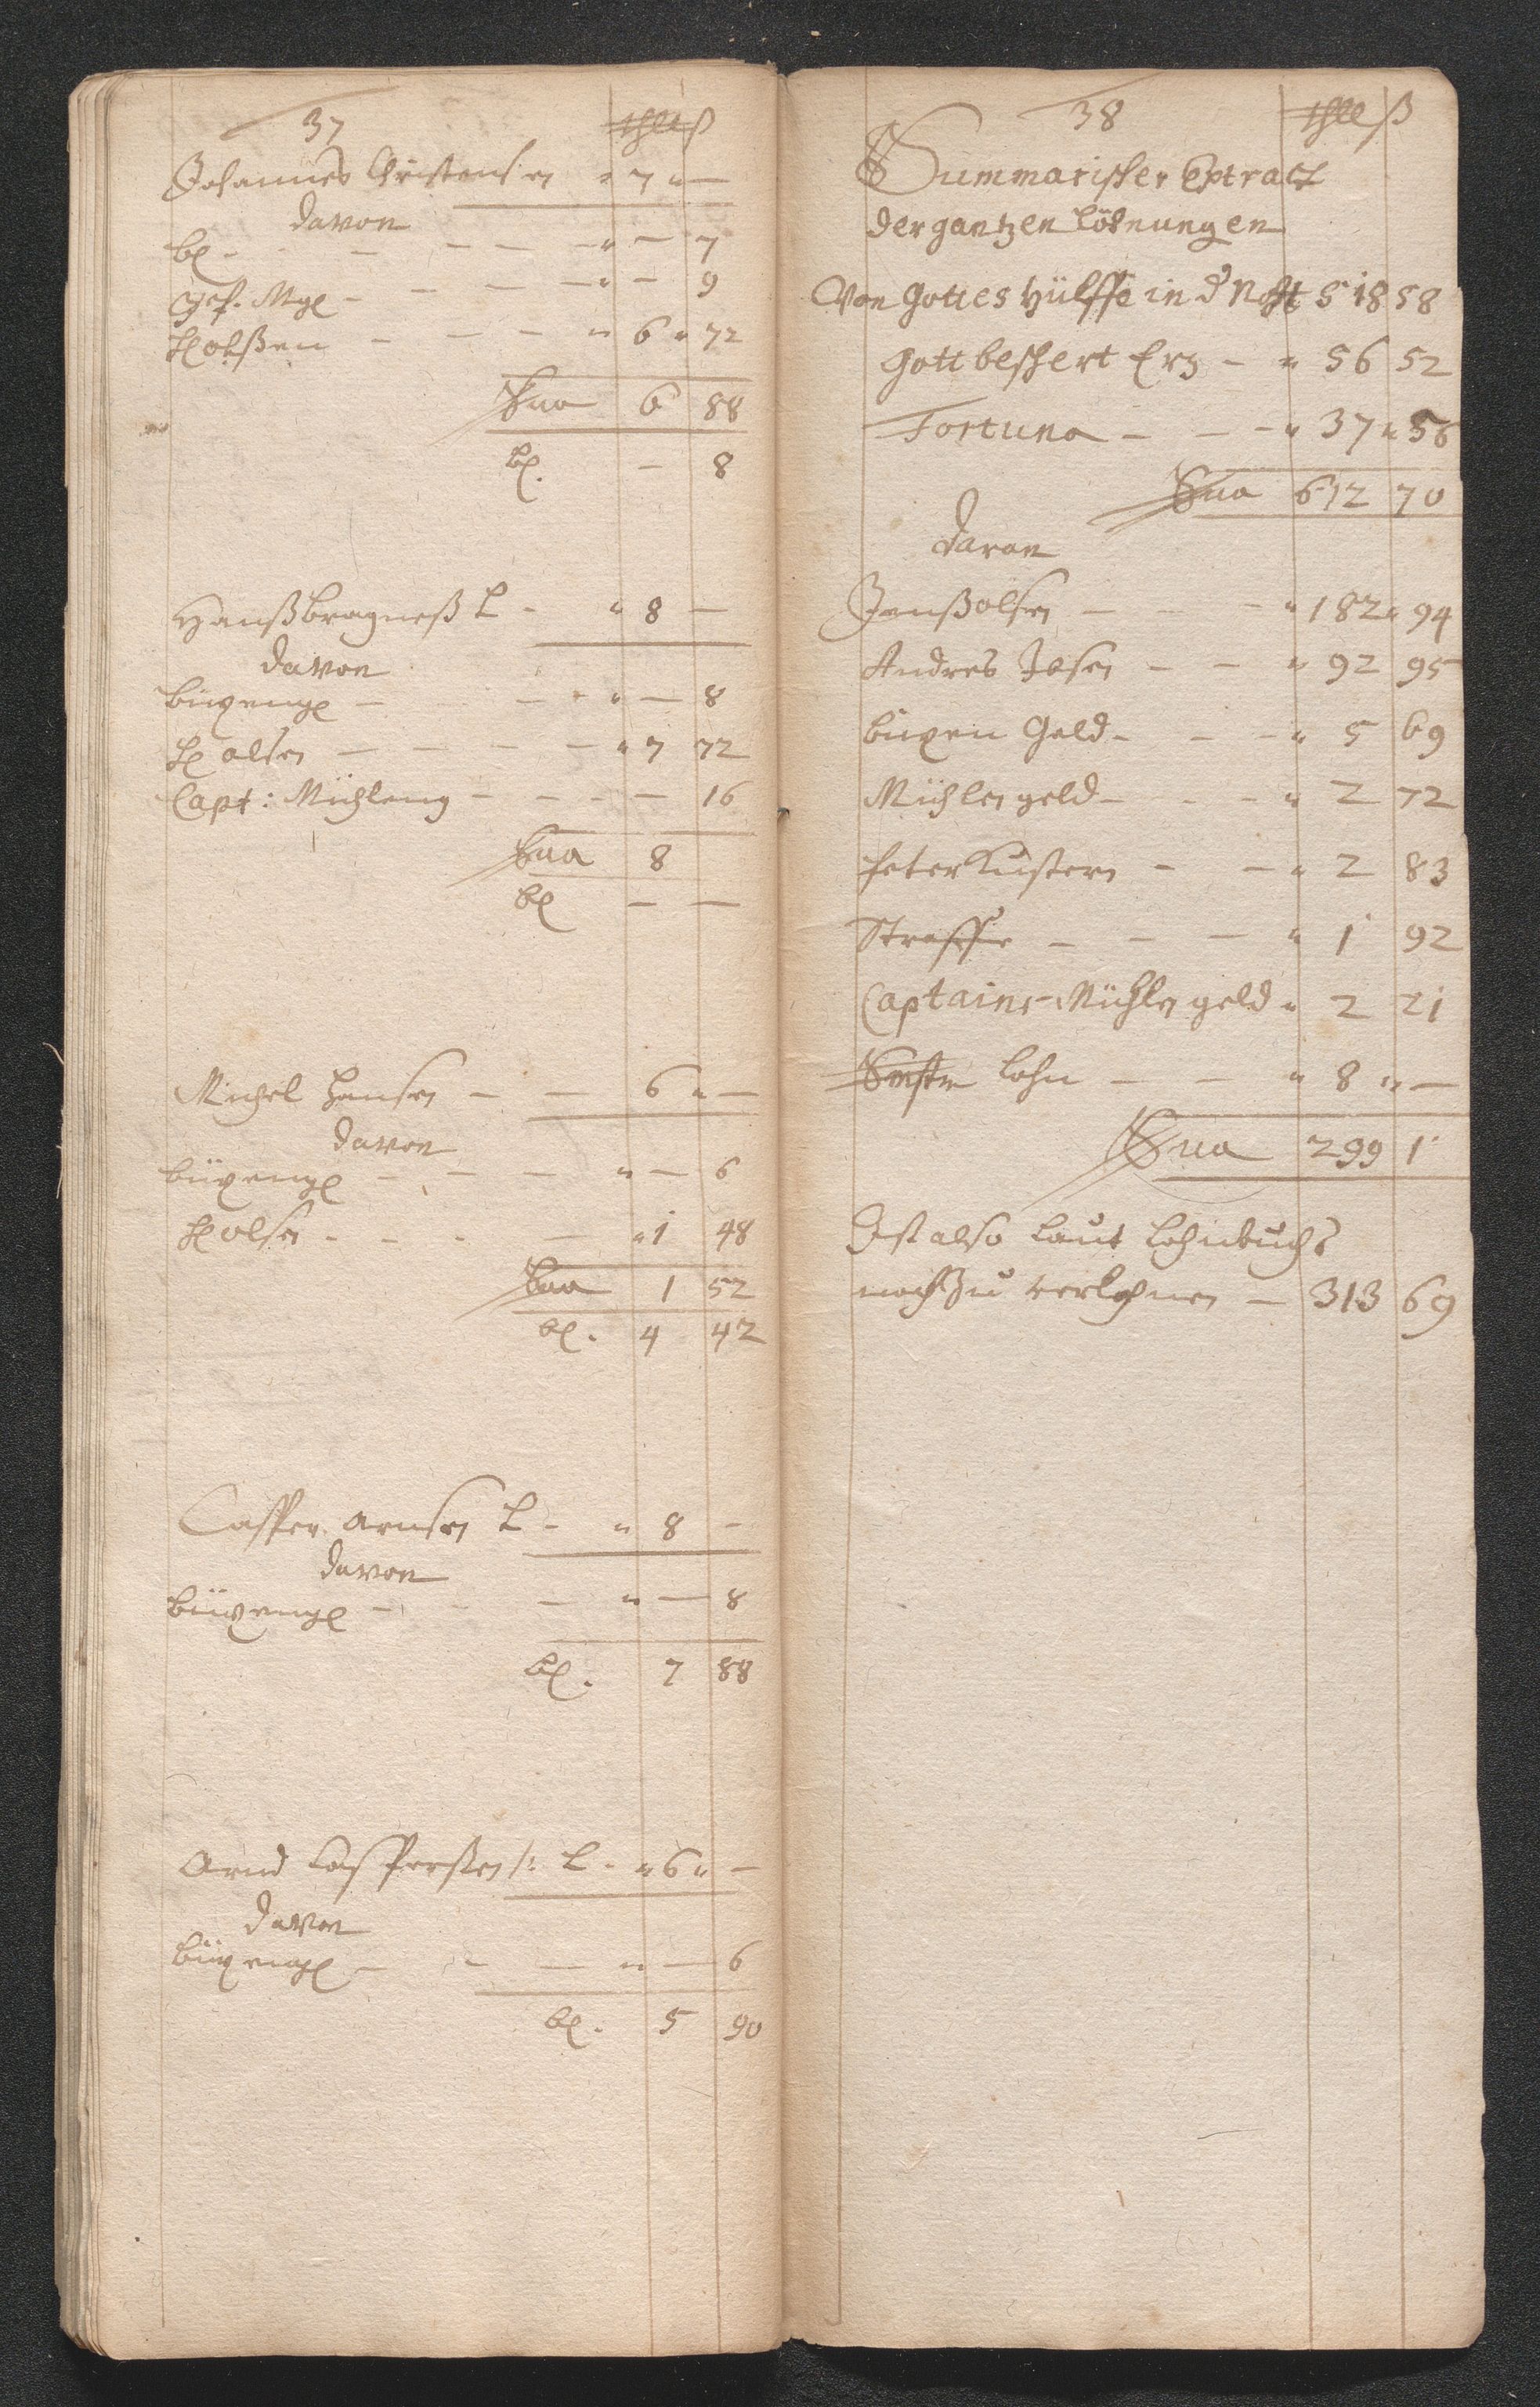 37 thlr ß
Johannes Christensen " 7 " —
davon
bl - — — — " — 7
Gesch. Mgl - — — — " — 9
H olßen — — — " 6 " 72
Sua 6 88
bl. — 8
Hanß bragneß L - " 8 —
davon
büxengl — — — " — 8
H olsen — — — — " 7 72
Capt: Mühleng - - - — 16
Sua 8
bl — —
Michel Hansen — — 6 " —
davon
büxengl - — — " — 6
H olsen - - - — " 1 48
Sua 1 52
bl. 4 42
Casper arnsen L - " 8 —
davon
büxengl - - — " — 8
bl. 7 88
Arnd Casperßen /: L - " 6 " —
davon
büxengl — - — " — 6
bl. 5 90
38 thlr ß
Summarischer Extract
der gantzen löhnungen
Von Gottes Hülffe in d Noht 518 58
Gott beschert Ertz — " 56 52
Fortuna — — — " 37 " 56
Sua 612 70
davon
Jenß olsen — — — " 182 " 94
Andres Ibsen — — " 92 95
büxen Geld — — — " 5 69
Mühlen geld — - — " 2 72
Peter Küstern — — " 2 83
Straffe — — — " 1 92
Captains Mühlen geld " 2 21
lohn — — " 8 " —
Sua 299 1
Ist also laut Lohnbuchs
noch zu verlohnen — 313 69